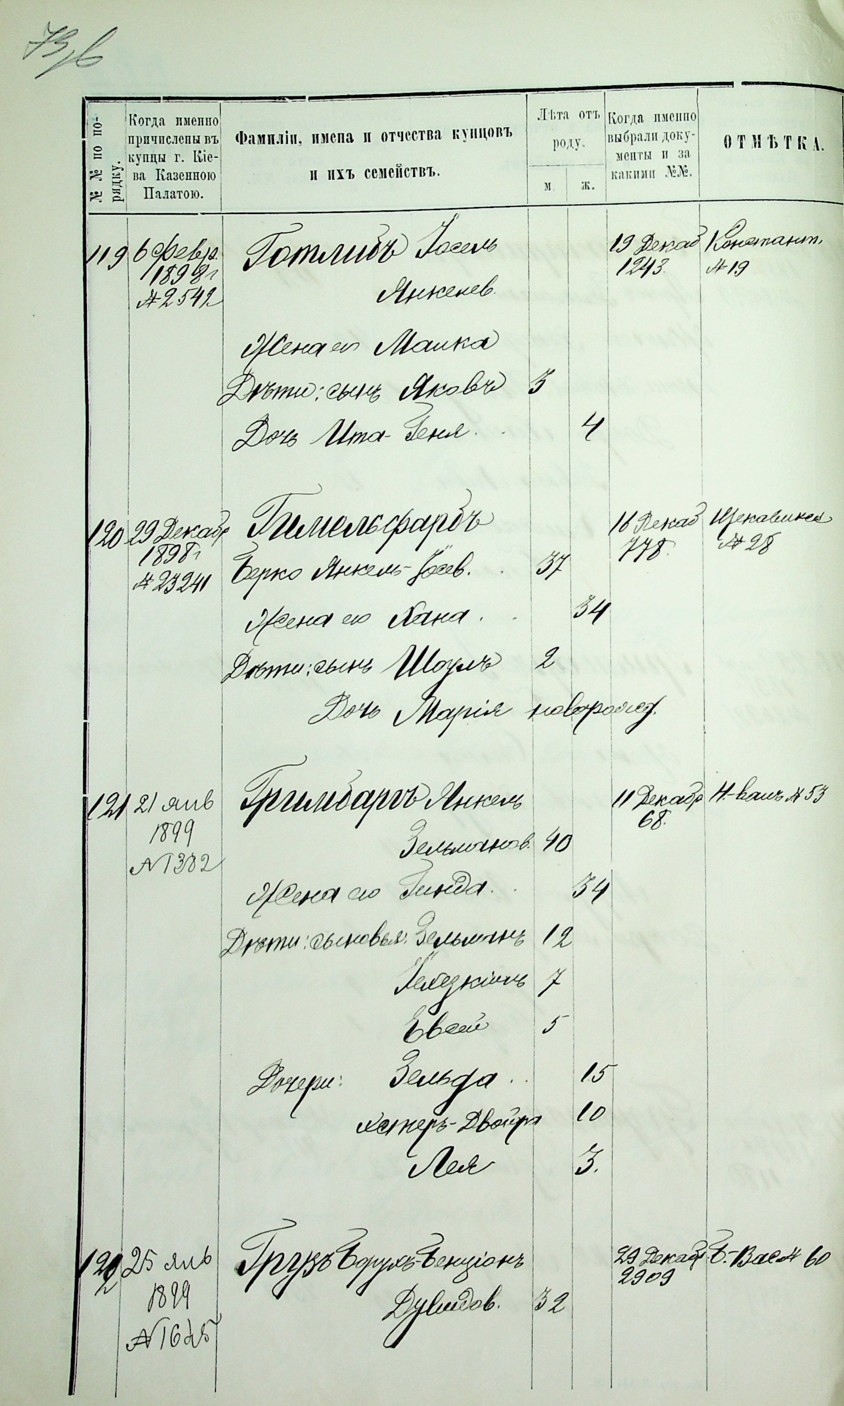 №№ по по-
рядку.
Когда именно
причислены въ
купцы г. Кіе-
ва Казенною
Палатою.
Фамиліи, имена и отчества купцовъ
и ихъ семействъ.
Лѣта отъ
роду.
м
ж.
Когда именно
выбрали доку-
менты и за
какими №№.
ОТМѢТКА.
119 6 Февр. Готлибъ Іосель 19 Декаб Константин.
1898 г 1243 № 19
№ 2542 Янкелев.
Жена его Малка
Дѣти: сынъ Яковъ 3
Дочь Ита-Геня 4
120 29 Декабр Гимельфарбъ 16 Декаб Щекавицкая
1898 г 778 № 28
№ 23241 Берко Янкель-Іосев. 37
Жена его Хана 34
Дѣти: сынъ Шоулъ 2
Дочь Марія новорожд.
121 21 янв Гримбаргъ Янкель 11 Декабр Н.-валъ № 53
1899 Зельманов. 40 68.
№ 1382
Жена его Гинда 34
Дѣти: сыновья: Зельманъ 12
Іехезкіилъ 7
Евсей 5
Дочери: Зельда 15
Эстеръ-Двойра 10
Лея 3.
122 25 янв Грузъ Борухъ-Бенціонъ 29 Декабр Б.-Вас № 60
1899 2909
№ 1645 Дувидов. 32